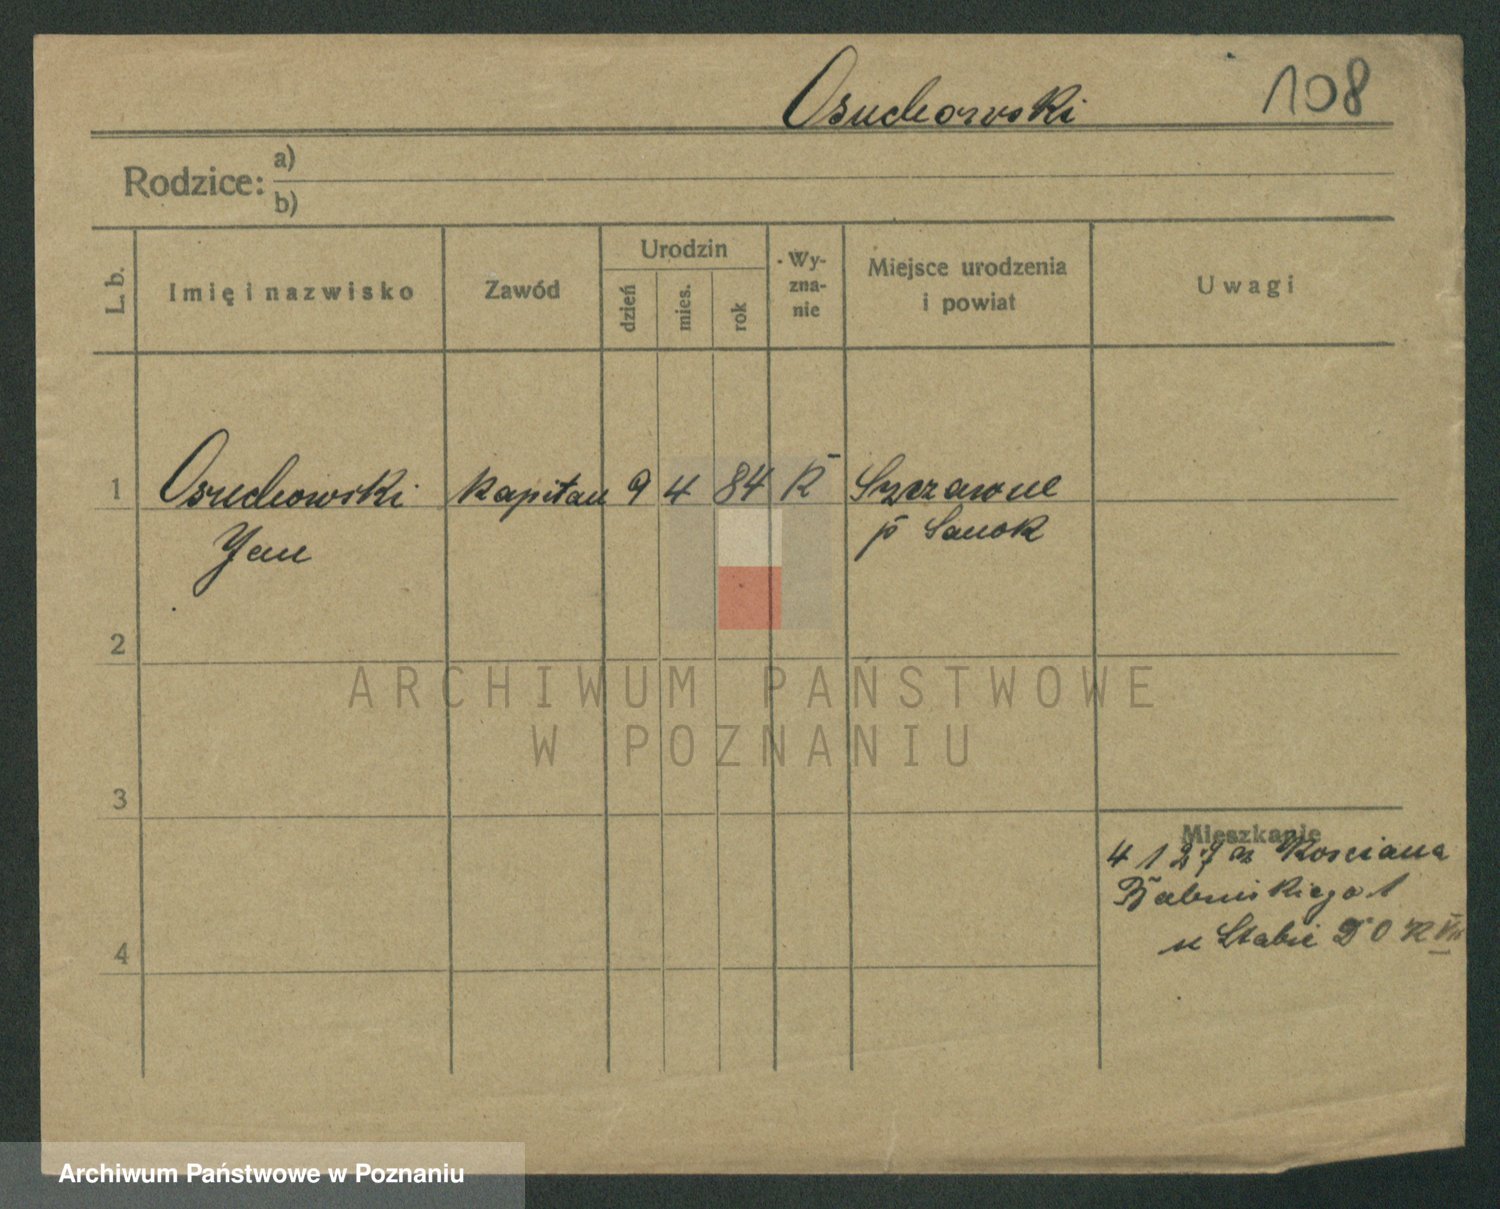 Osuchowski 108
Rodzice: a)
b)
L. b.
Imię i nazwisko
Zawód
Urodzin
dzień
mies.
rok
Wy-
zna-
nie
Miejsce urodzenia
i powiat
Uwagi
1 Osuchowski kapitan 9 4 84 K Szczawne
Jan p Sanok
2
ARCHIWUM PAŃSTWOWE
W POZNANIU
3
Mieszkanie
4 1 27 z Kościana
1
w Stabie D O K VII
4
Archiwum Państwowe w Poznaniu